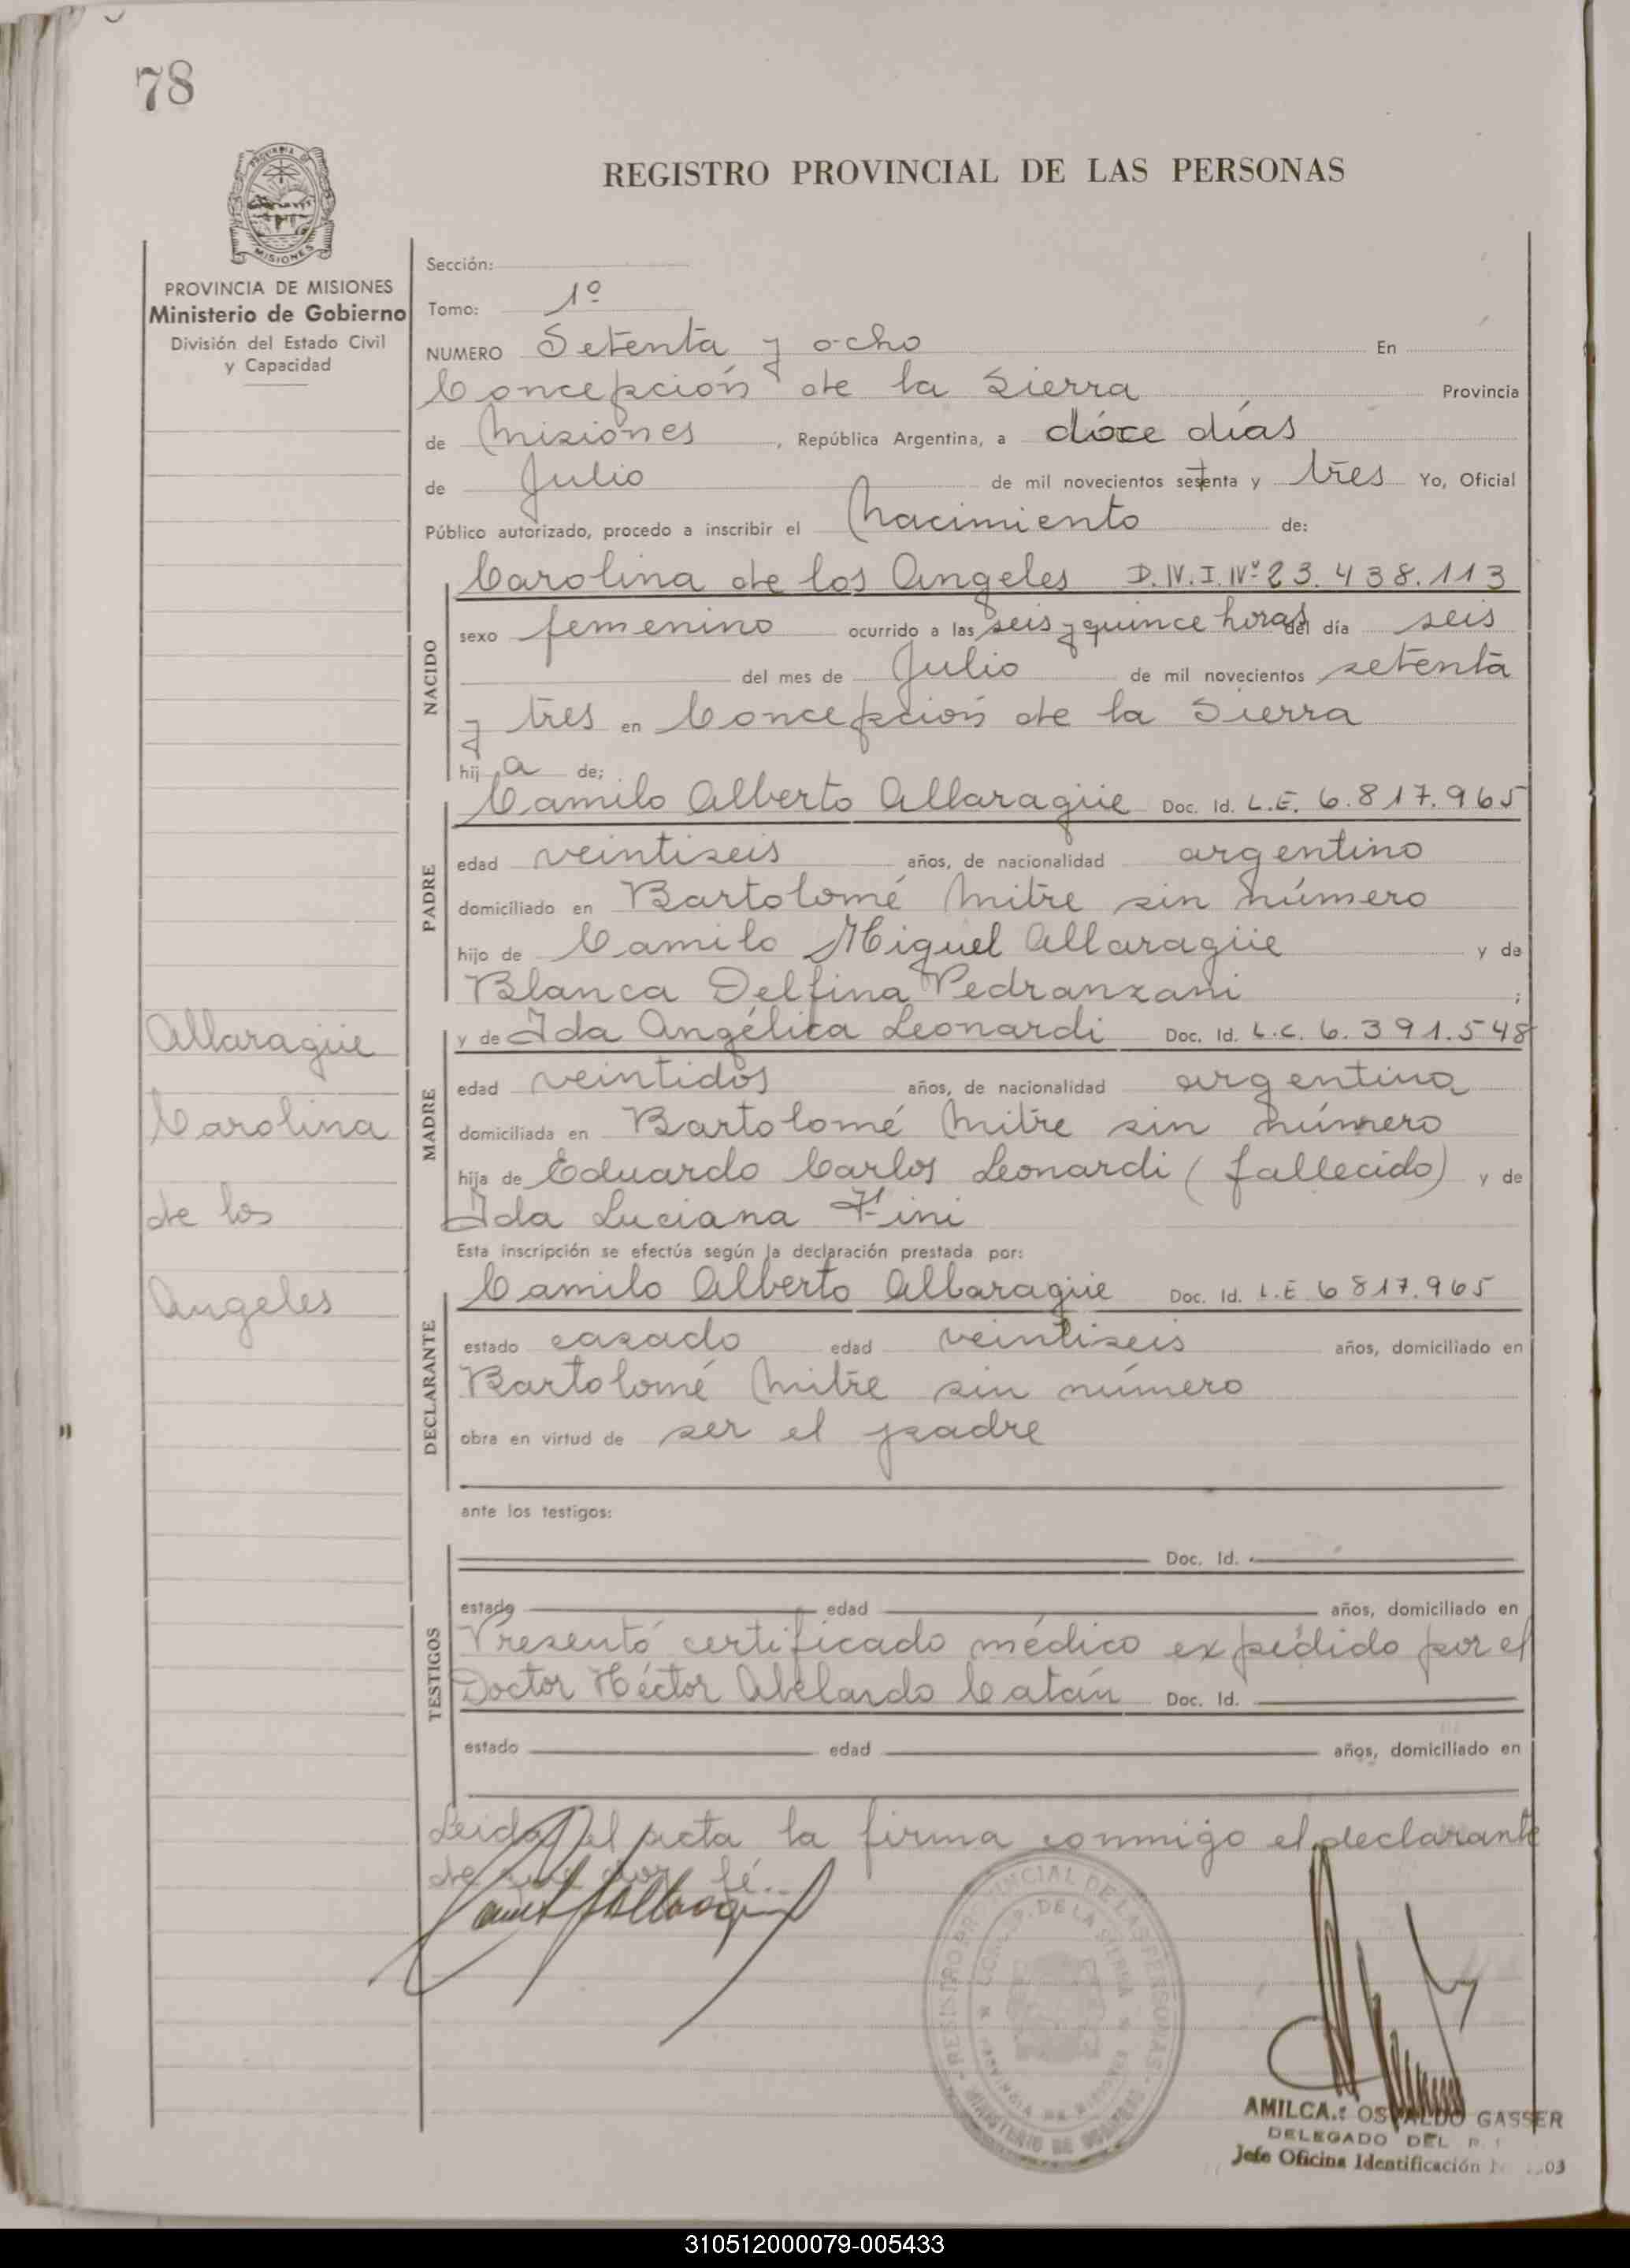 78
REGISTRO PROVINCIAL DE LAS PERSONAS
MISIONES
PROVINCIA DE MISIONES
Ministerio de Gobierno
División del Estado Civil
y Capacidad
Sección:
Tomo: 1º
NUMERO Setenta y ocho En
Concepción de la Sierra Provincia
de Misiones, República Argentina, a dóce días
de Julio de mil novecientos setenta y tres Yo, Oficial
Público autorizado, procedo a inscribir el Nacimiento de:
NACIDO
Carolina de los Angeles D.N.I. Nº 23.438.113
sexo femenino ocurrido a las seis y quince horas del día seis
del mes de Julio de mil novecientos setenta
y tres en Concepción de la Sierra
hij a de;
PADRE
Camilo Alberto Allaragüe Doc. Id. L.E. 6.817.965
edad veintiseis años, de nacionalidad argentino
domiciliado en Bartolomé Mitre sin número
hijo de Camilo Miguel Allaragüe y de
Blanca Delfina Pedranzani ;
MADRE
y de Ida Angélica Leonardi Doc. Id. L.C. 6.391.548
edad veintidos años, de nacionalidad argentina
domiciliada en Bartolomé Mitre sin número
hija de Eduardo Carlos Leonardi (fallecido) y de
Ida Luciana Fini
Allaragüe
Carolina
de los
Angeles
Esta inscripción se efectúa según la declaración prestada por:
DECLARANTE
Camilo Alberto Allaragüe Doc. Id. L.E 6817.965
estado casado edad veintiseis años, domiciliado en
Bartolomé Mitre sin número
obra en virtud de ser el padre
ante los testigos:
TESTIGOS
Doc. Id.
estado edad años, domiciliado en
Presentó certificado médico expedido por el
Doctor Héctor Abelardo Catán Doc. Id.
estado edad años, domiciliado en
Leida el acta la firma conmigo el declarante
de que doy fé.
REGISTRO PROVINCIAL DE LAS PERSONAS
CONCEP. DE LA SIERRA
PROVINCIA DE MISIONES
MINISTERIO DE GOBIERNO
OSVALDO GASSER
DELEGADO DEL
Jefe Oficina Identificación
310512000079-005433